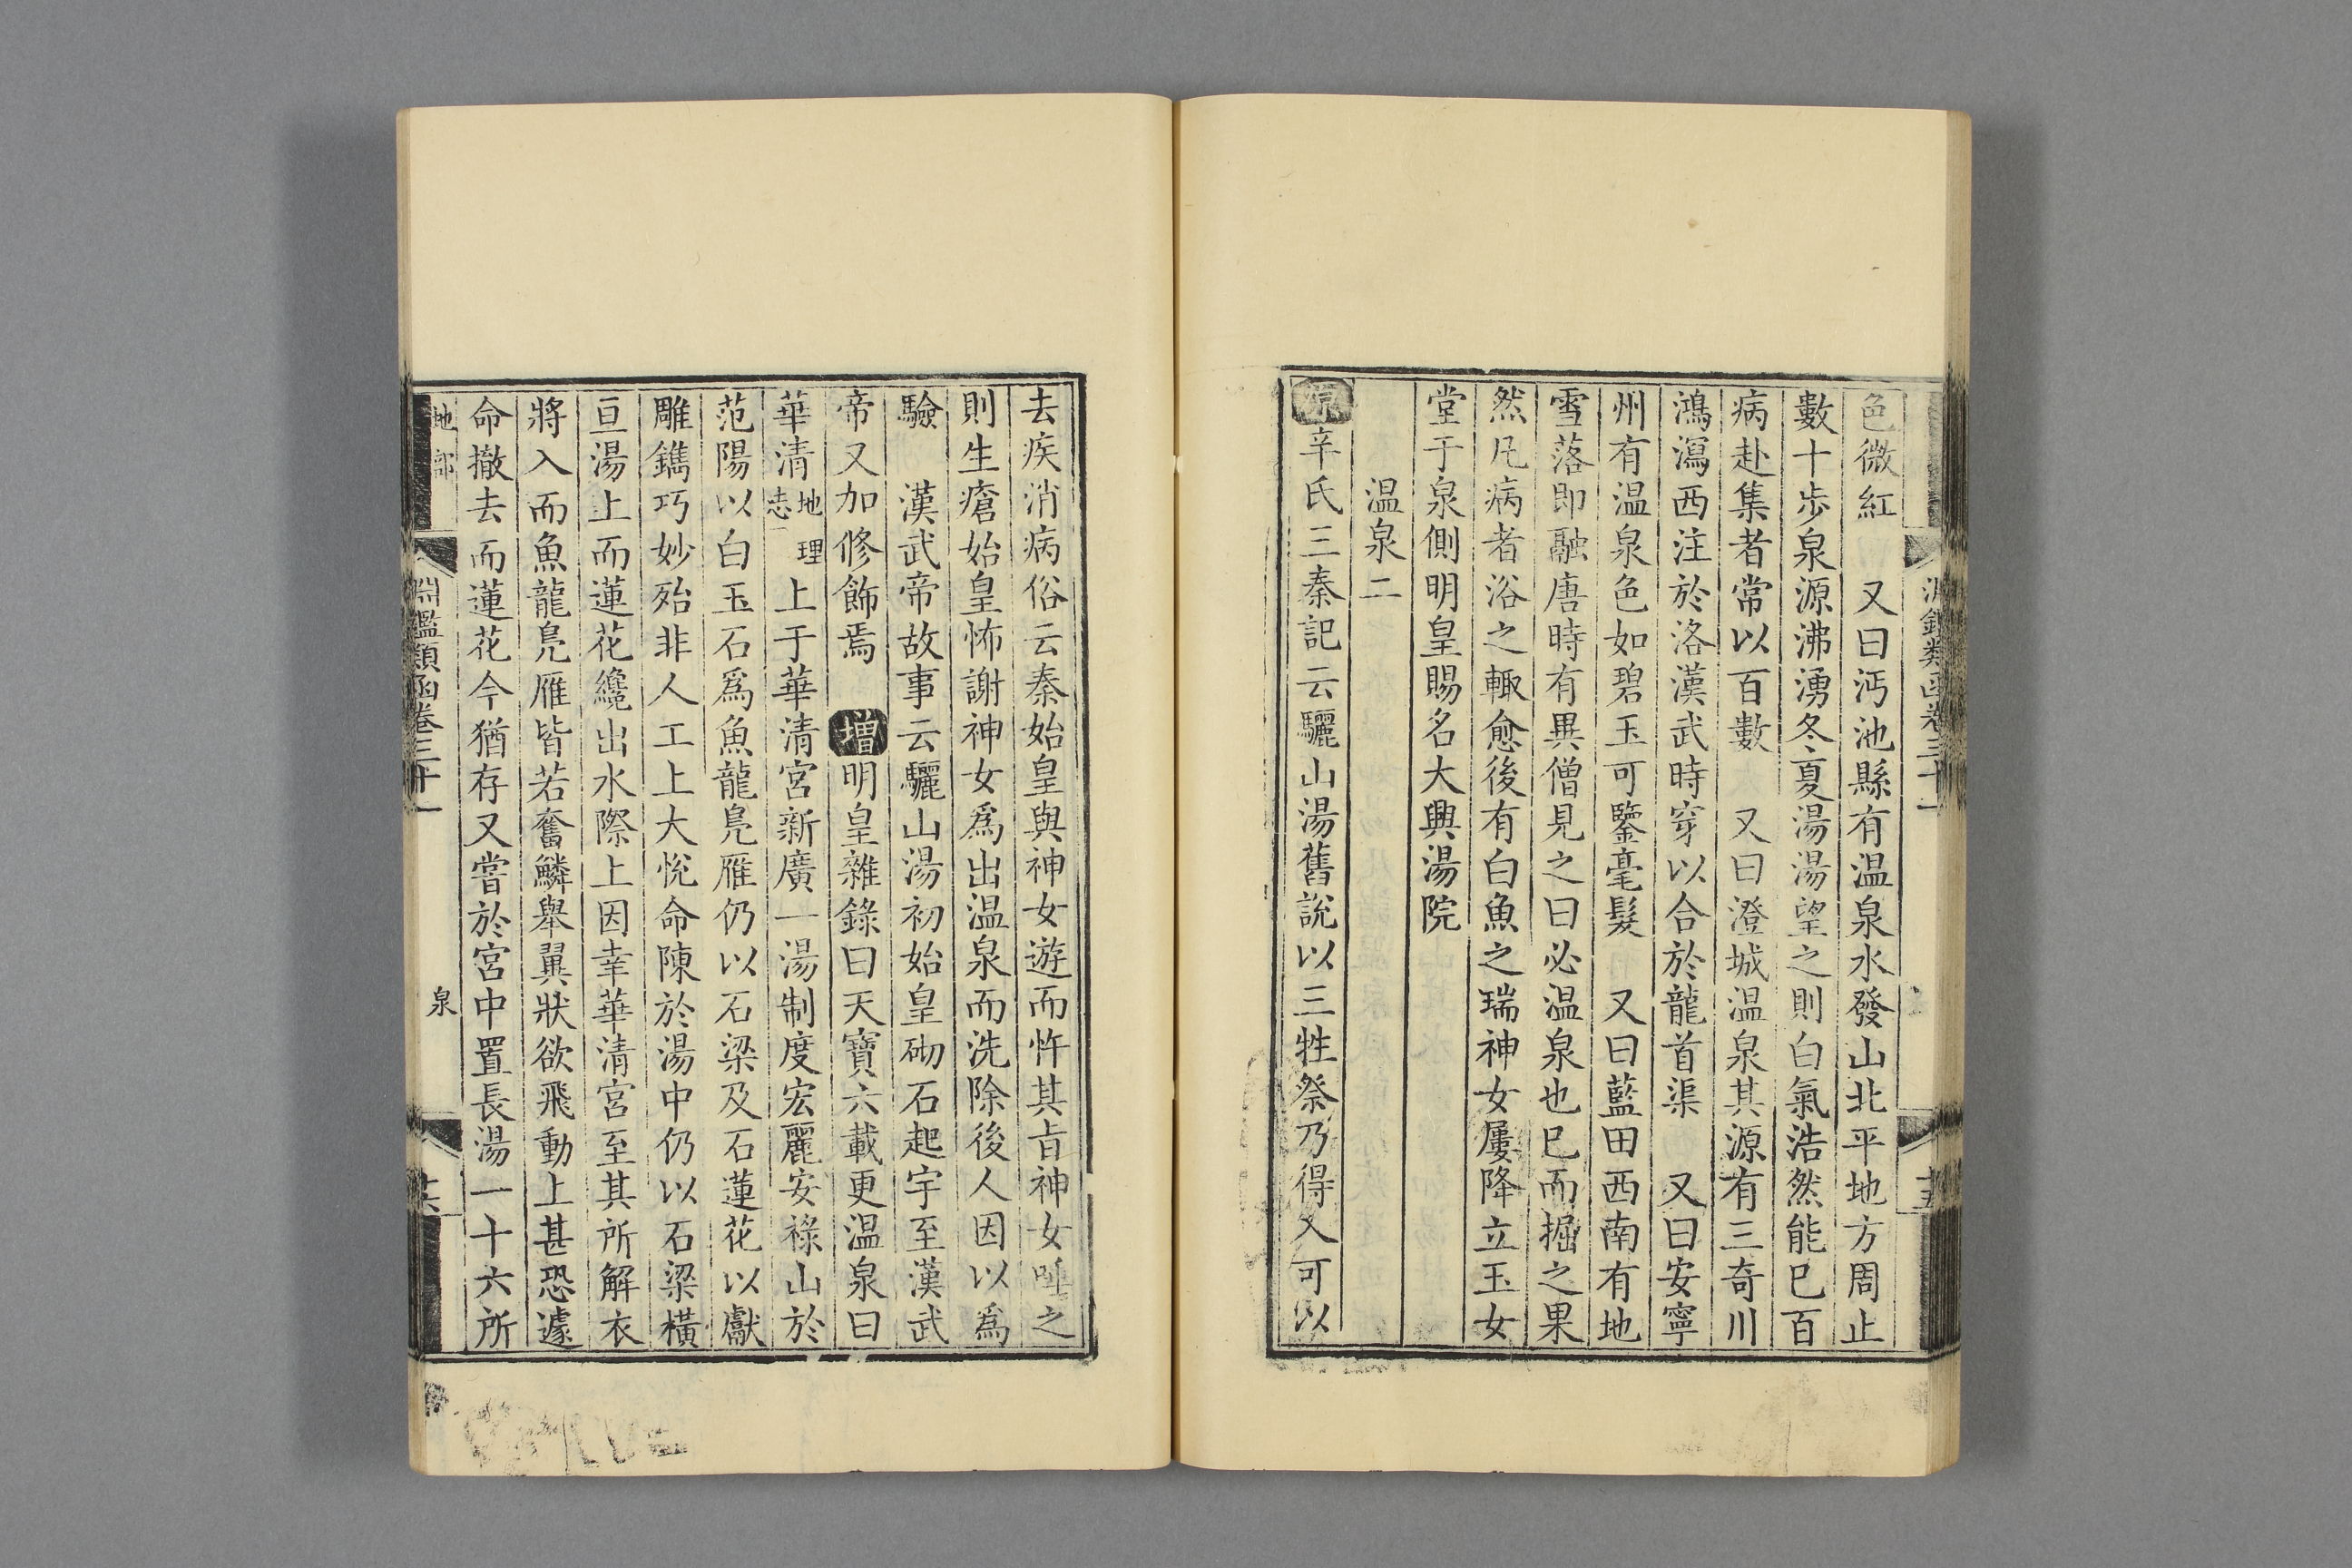 色微紅　又曰沔池縣有温泉水發山北平地方周止
數十歩泉源沸湧冬夏湯湯望之則白氣浩然能已百
病赴集者常以百數　又曰澄城温泉其源有三奇川
鴻瀉西注於洛漢武時穿以合於龍首渠　又曰安寧
州有温泉色如碧玉可鑒毫髮　又曰藍田西南有地
雪落即融唐時有異僧見之曰必温泉也已而掘之果
然凡病者浴之輙愈後有白魚之瑞神女屢降立玉女
堂于泉側明皇賜名大興湯院
温泉二
原辛氏三秦記云驪山湯舊說以三牲祭乃得入可以
淵鑑類函卷三十一
十五
去疾消病俗云秦始皇與神女遊而忤其旨神女唾之
則生瘡始皇怖謝神女爲出温泉而洗除後人因以爲
驗　漢武帝故事云驪山湯初始皇砌石起宇至漢武
帝又加修飾焉　增明皇雜錄曰天寶六載更温泉曰
華清地理志上于華清宮新廣一湯制度宏麗安祿山於
范陽以白玉石爲魚龍鳧雁仍以石梁及石蓮花以獻
雕鐫巧妙殆非人工上大悅命陳於湯中仍以石梁橫
亘湯上而蓮花纔出水際上因幸華清宮至其所解衣
將入而魚龍鳧雁皆若奮鱗舉翼狀欲飛動上甚恐遽
命撤去而蓮花今猶存又嘗於宮中置長湯一十六所
地部
淵鑑類函卷三十一
泉
十六